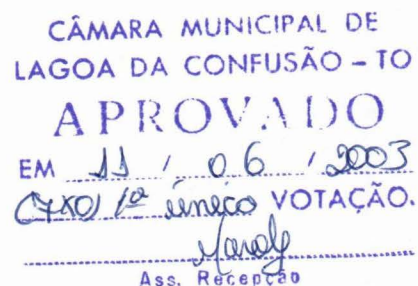 CÂMARA MUNICIPAL DE
LAGOA DA CONFUSÃO – TO
APROVADO
EM 11 / 06 / 2003
(7X0) 1ª único VOTAÇÃO.
Ass. Recepção